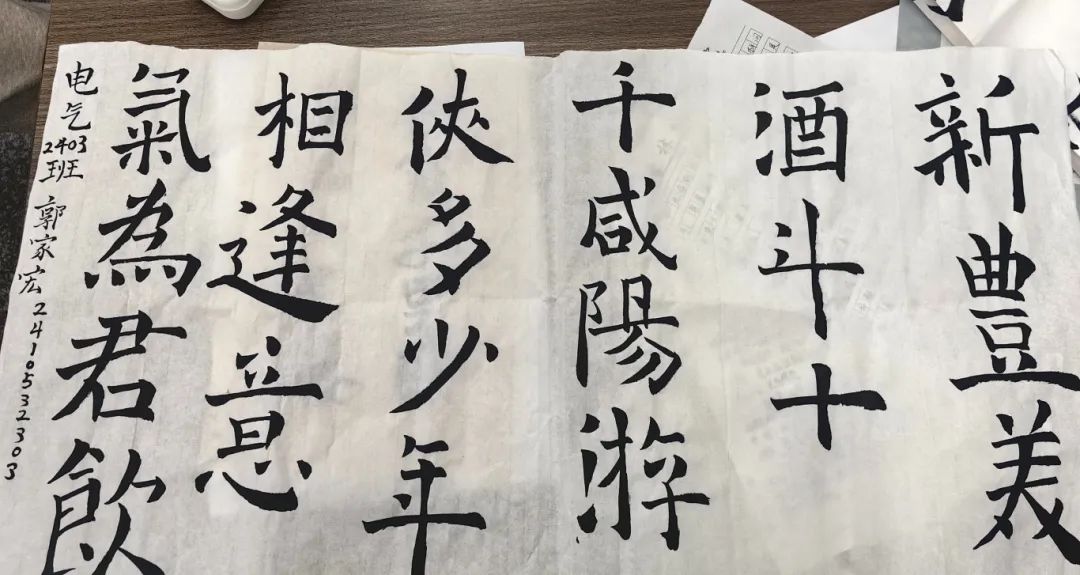 新豐美
酒斗十
千咸陽游
俠多少年
相逢意
氣為君飲
电气2403班 郭家宏 2410532303